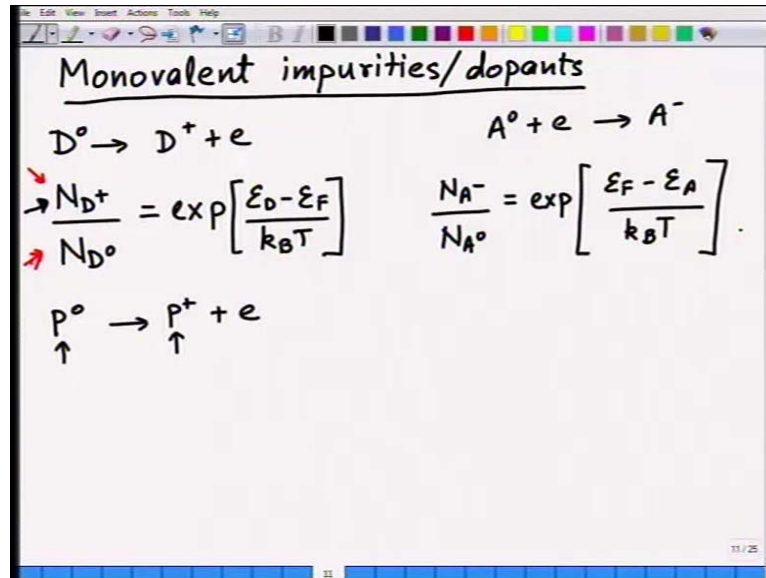 File Edit View Insert Actions Tools Help
Monovalent impurities/dopants
D⁰ → D⁺ + e
A⁰ + e → A⁻
N_D⁺ / N_D⁰ = exp[(ε_D - ε_F) / k_BT]
N_A⁻ / N_A⁰ = exp[(ε_F - ε_A) / k_BT].
P⁰ → P⁺ + e
11 / 25
11